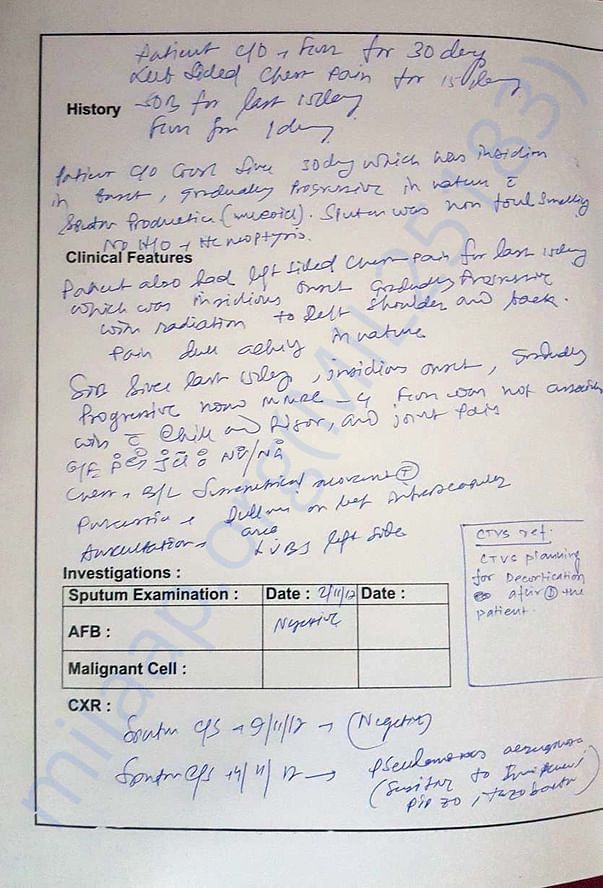 Patient C/O → Fever for 30 day
Left Sided Chest Pain for 15 day
History SOB for last 15 day
Fever for 1 day
Patient C/O Cough Since 30 day which was insidious
in onset, gradually Progressive in nature c̄
Sputum Production (mucoid). Sputum was non foul Smelling
No H/O → Hemoptysis.
Clinical Features
Patient also had left sided Chest Pain for last 15 day
which was insidious onset gradually Progressive
with radiation to left shoulder and back.
Pain dull aching in nature
SOB Since last 15 day, insidious onset, Gradually
Progressive now MMRC – 4 Fever was not associated
with c̄ Chill and Rigor, and joint pain
G/E
Chest → B/L Symmetrical movement
Percussion → Dullness on left Interscapular
area
Auscultation → ↓VBS left side
CTVS ref.
CTVS planning
for Decortication
after the
patient.
Investigations :
Sputum Examination : Date : 2/11/12 Date :
AFB : Negative
Malignant Cell :
CXR :
Sputum C/S → 9/11/12 → (Negative)
Sputum C/S → 14/11/12 → Pseudomonas aeruginosa
(Sensitive to Imipenem,
Pipzo, Tazobactum)
milaap.org(MIL25183)